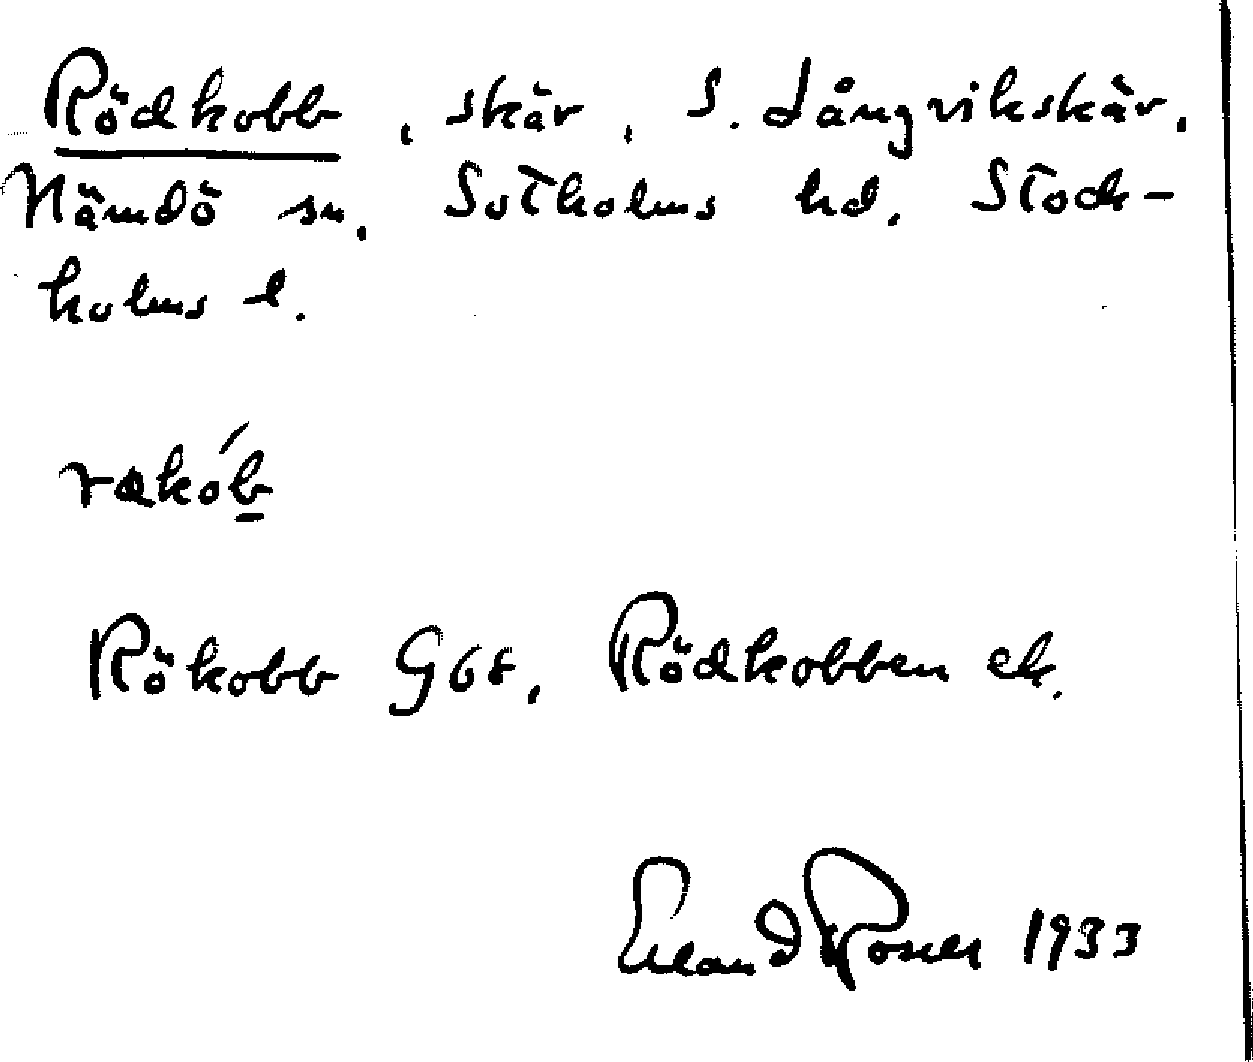 Rödkobb, skär, S. Långvikskär,
Nämdö sn, Sotholms hd. Stock-
holms l.
Rökobb G68, Rödkobben ek.
Erland Rosell 1933